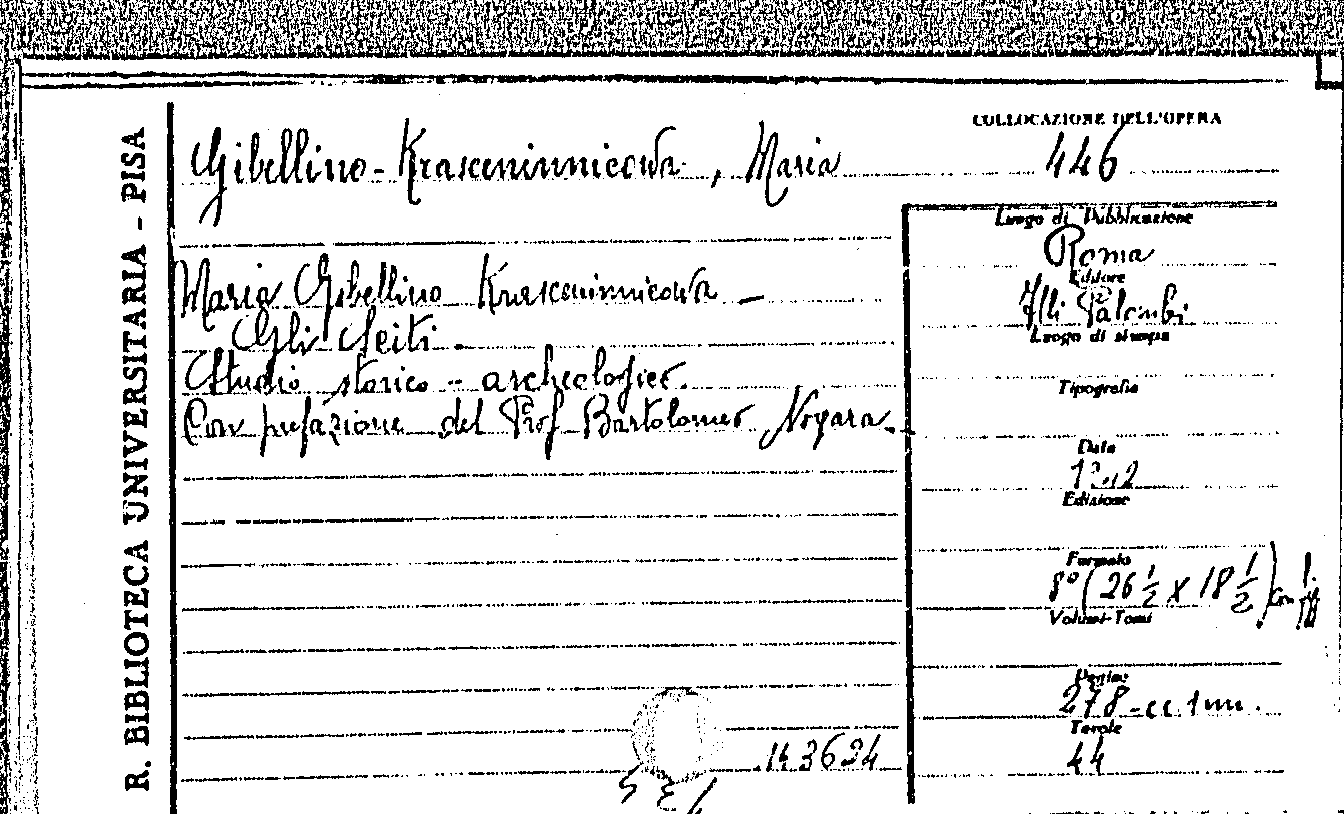 R. BIBLIOTECA UNIVERSITARIA - PISA
COLLOCAZIONE DELL'OPERA
446
Gibellino-Krasceninnicowa, Maria
Maria Gibellino Krasceninnicowa —
Gli Sciti.
Studio storico - archeologico.
Con prefazione del Prof. Bartolomeo Nogara.
143634
Luogo di Pubblicazione
Roma
Editore
Flli Palombi
Luogo di stampa
Tipografia
Data
Edizione
Formato
8° (26 1/2 x 18 1/2) con
Volumi-Tomi
Pagine
278 - cc. 1 nn.
Tavole
44